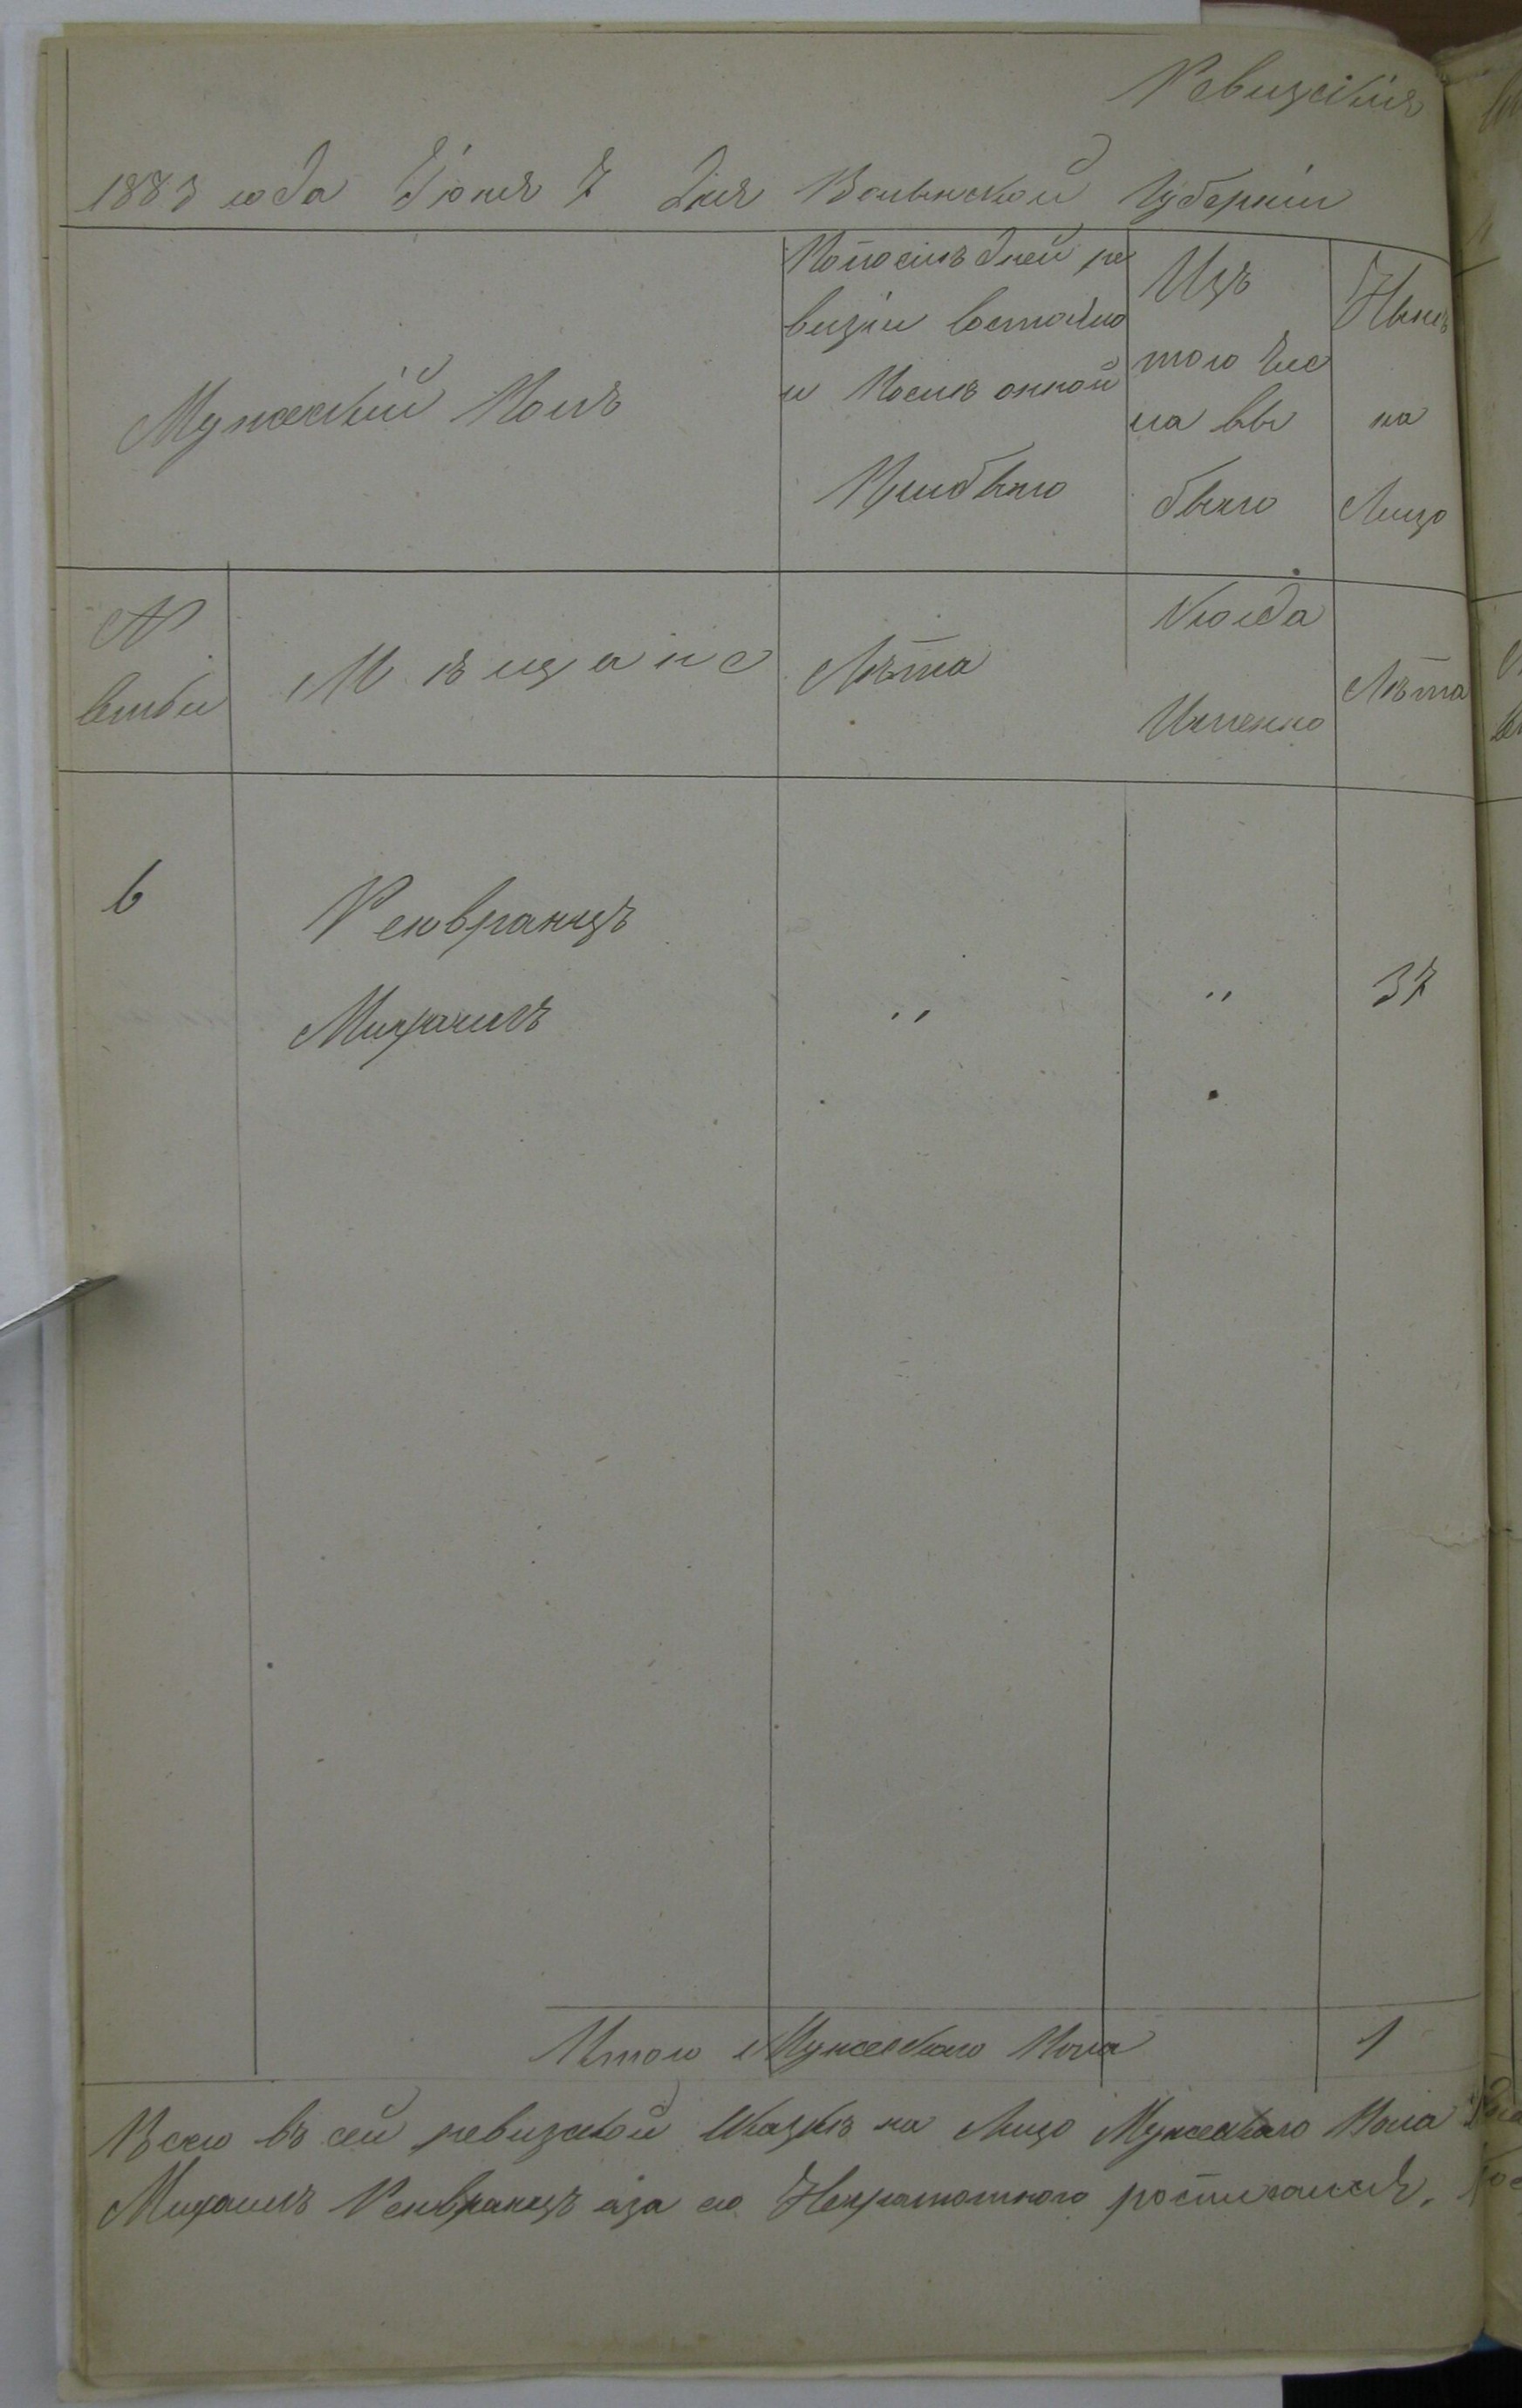 Ревизскія
1883 года Іюня 7 дня Волынской Губерніи
Мужескій Полъ
По последней ре
визіи состояло
и После онной
Прибыло
Изъ
того чис
ла вы
было
Ныне
на
Лицо
№
семьи
Мѣщане
Лѣта
Когда
Именно
Лѣта
6
Рейвранцъ
Михаилъ
"
"
37
Итого Мужескаго Пола
1
Всего въ сей ревизской Сказкѣ на Лицо Мужескаго Пола
Михаилъ Рейвранцъ аза его Неграмотного росписался.